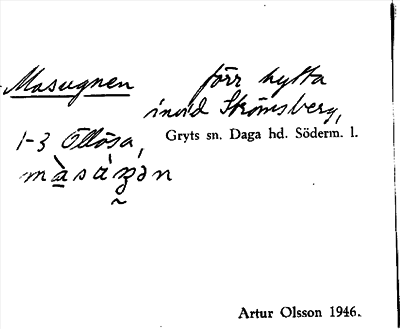 Masugnen förr hytta
invid Strömsberg,
1-3 Ollösa, Gryts sn. Daga hd. Söderm. l.
Artur Olsson 1946.